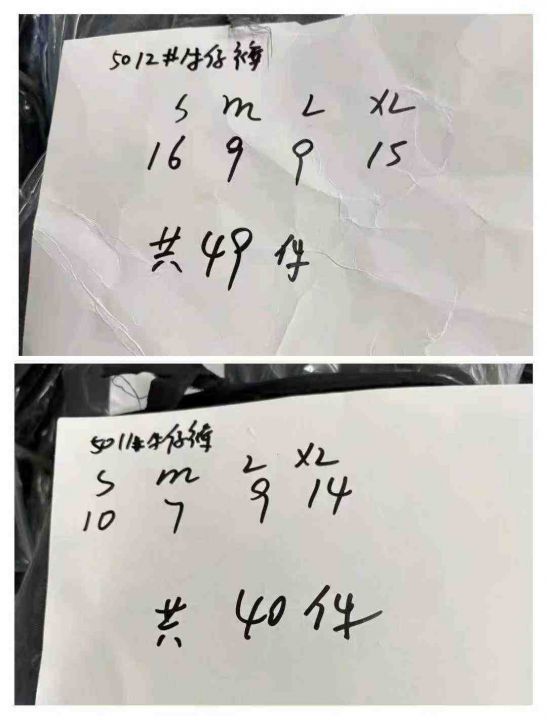 5012#牛仔裤
S M L XL
16 9 9 15
共 49 件
5011#牛仔裤
S M L XL
10 7 9 14
共 40 件